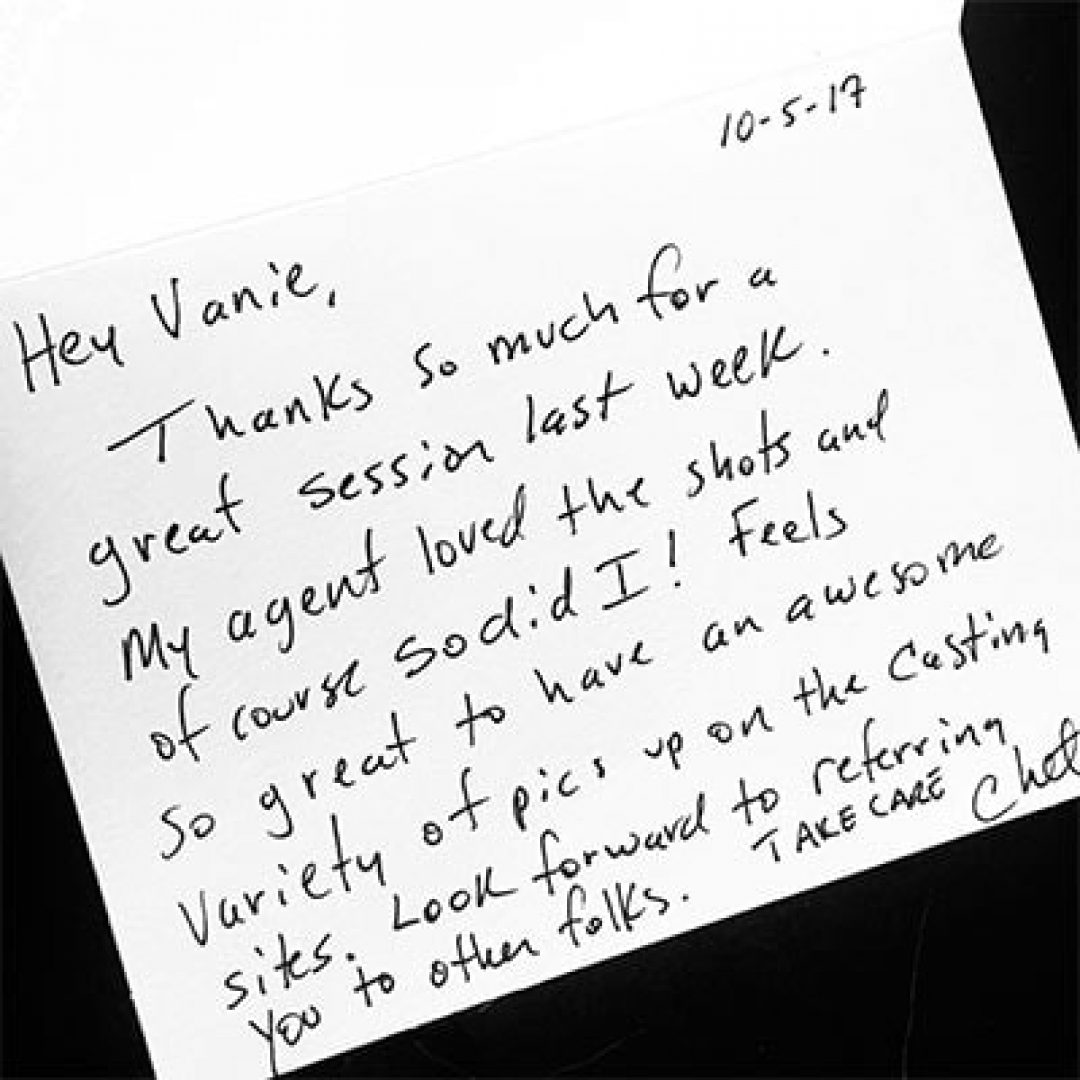 10-5-17
Hey Vanie,
Thanks so much for a
great session last week.
My agent loved the shots and
of course so did I! Feels
so great to have an awesome
variety of pics up on the casting
sites. Look forward to referring
you to other folks. TAKE CARE
Chet